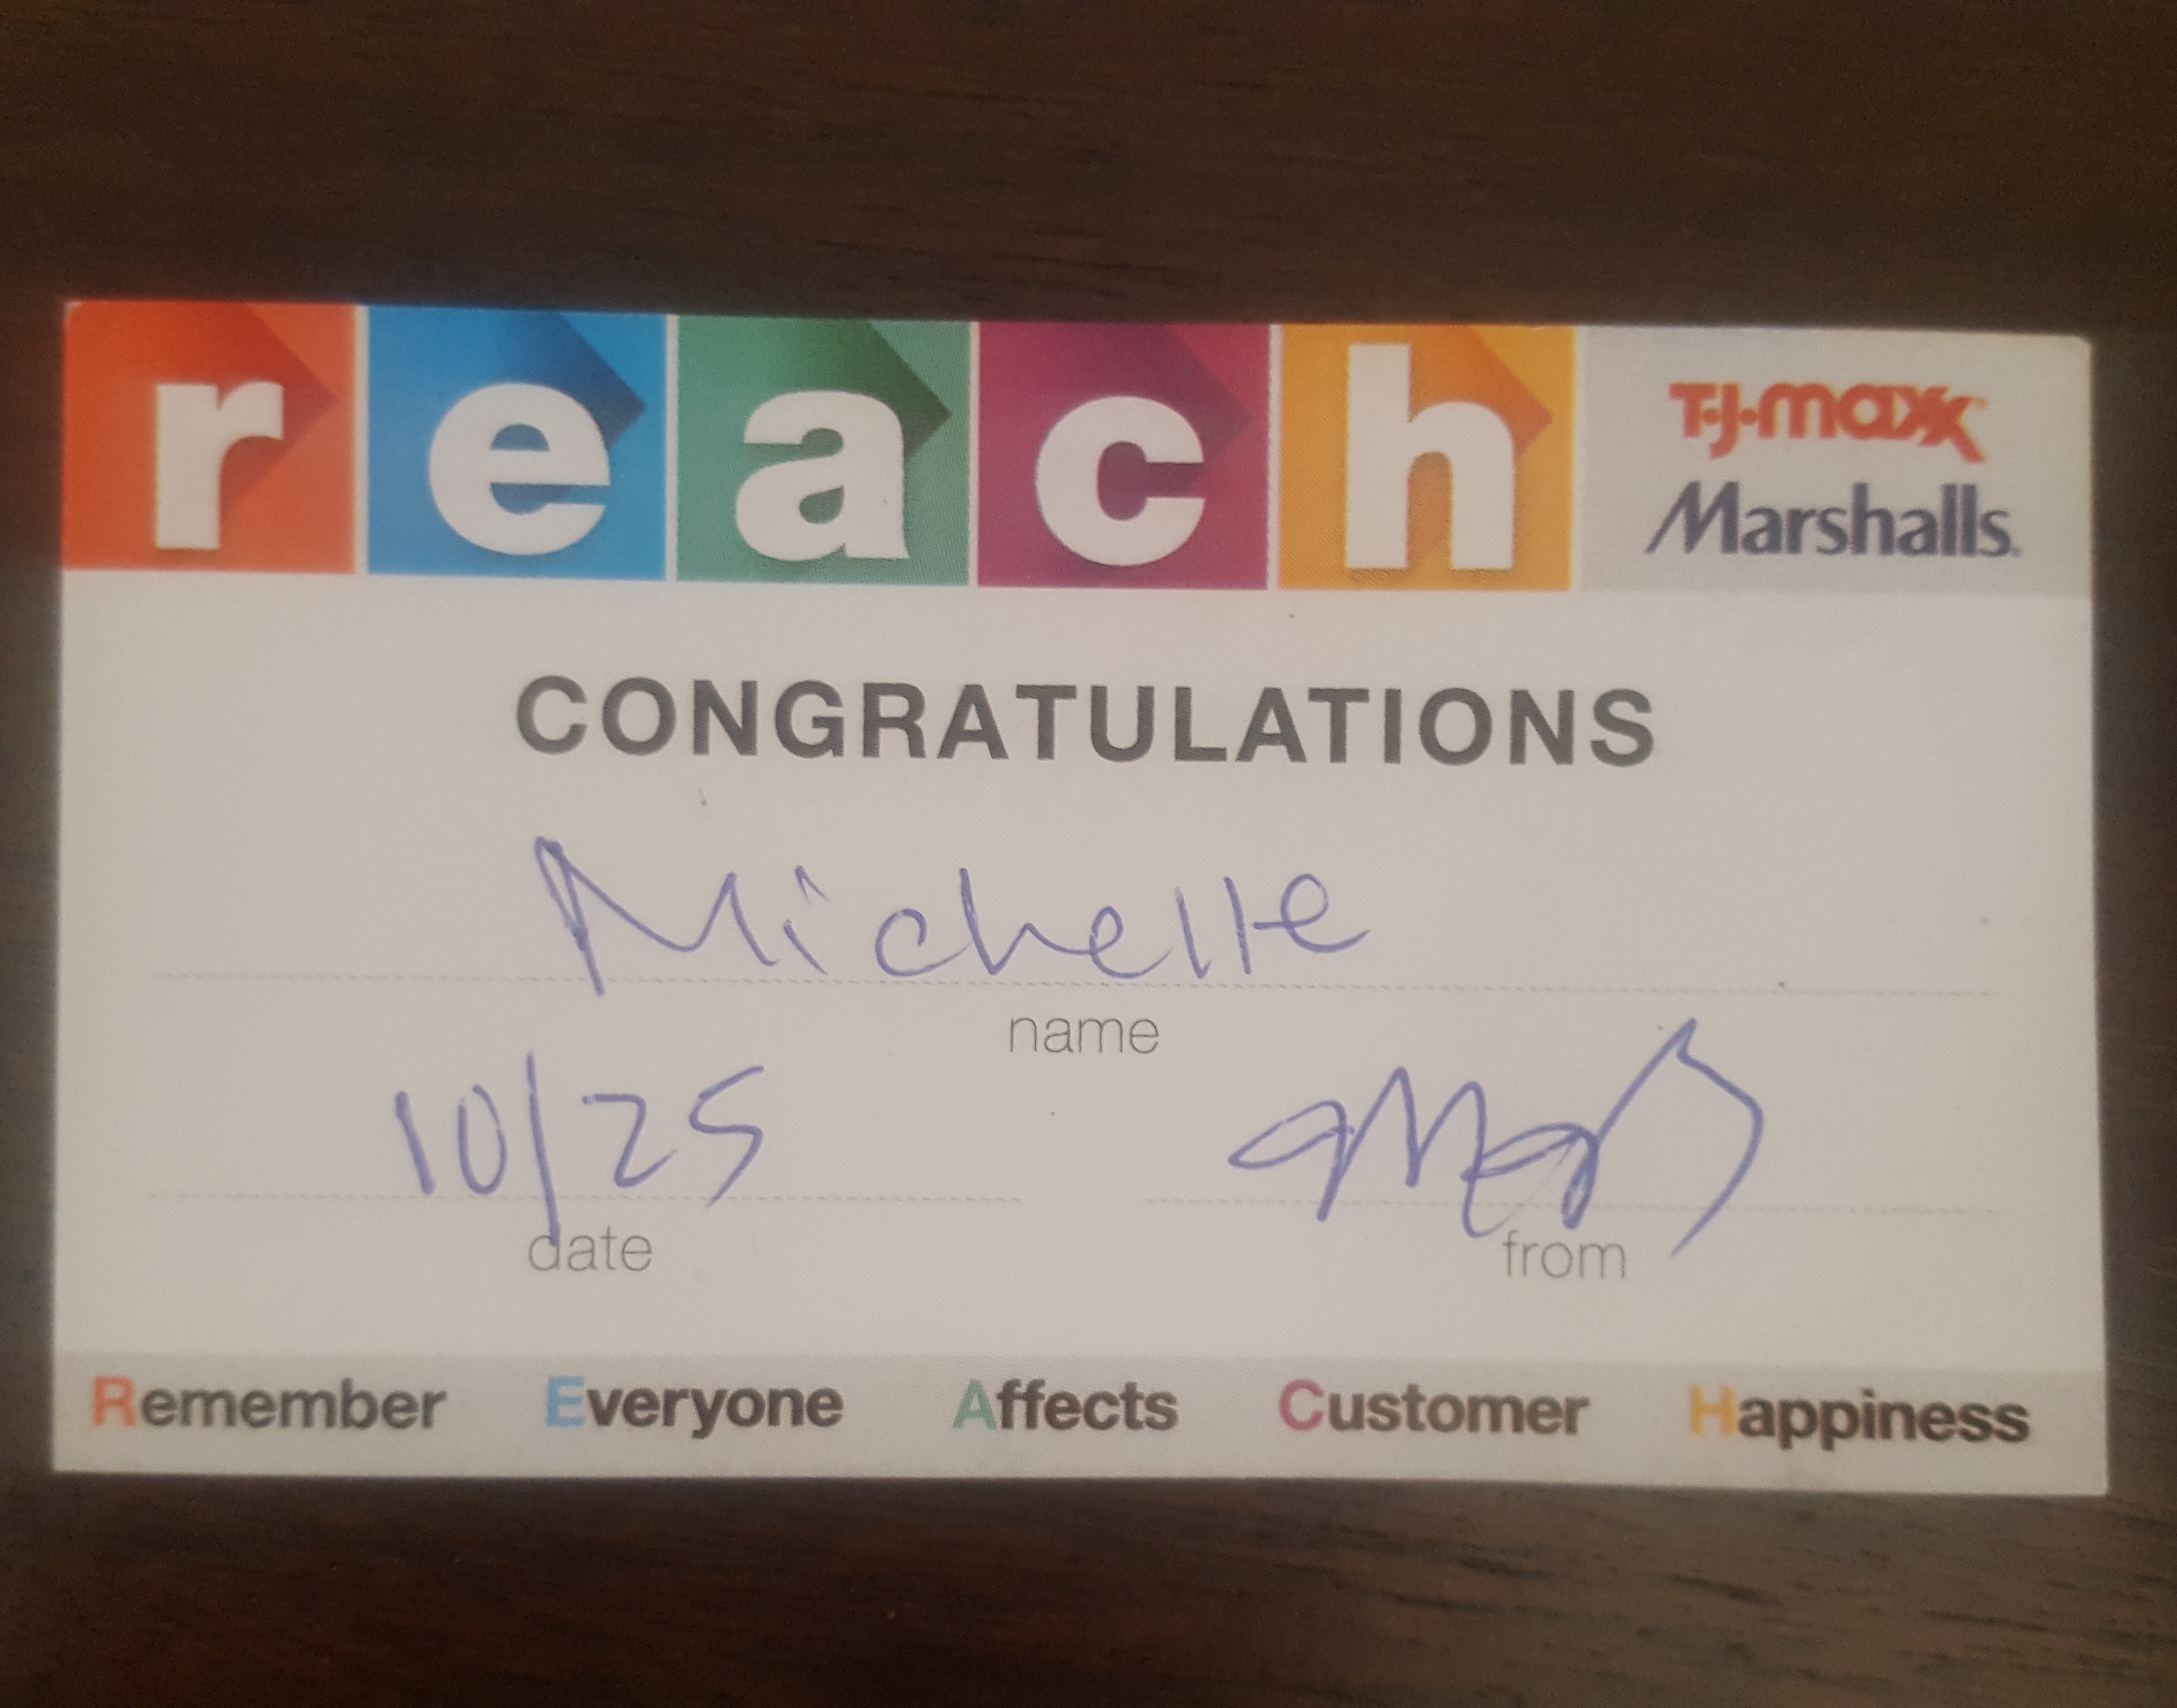 reach
T·J·maxx
Marshalls.
CONGRATULATIONS
Michelle
name
10/25
date
from
Remember Everyone Affects Customer Happiness